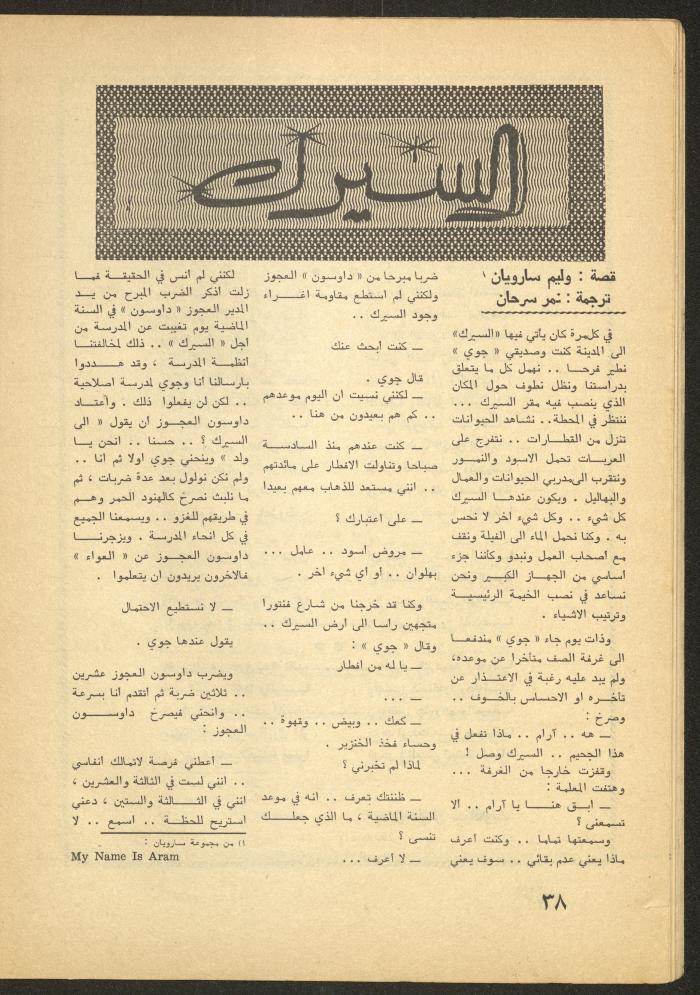 السيرك
قصة : وليم سارويان ١
ترجمة : نمر سرحان
في كل مرة كان يأتي فيها «السيرك»
الى المدينة كنت وصديقي « جوي »
نطير فرحـا .. نهمل كل ما يتعلق
بدراستنا ونظل نطوف حول المكان
الذي ينصب فيه مقر السيرك ...
ننتظر في المحطة.. نشاهد الحيوانات
تنزل من القطـارات .. نتفرج على
العربـات تحمل الاسود والنمـور
ونتقرب الى مدربي الحيوانات والعمال
والبهاليل . ويكون عندهـا السيرك
كل شيء .. وكل شيء اخر لا نحس
به . وكنا نحمل الماء الى الفيلة ونقف
مع اصحاب العمل ونبدو وكأننا جزء
اساسي من الجهـاز الكبـير ونحن
نساعد في نصب الخيمة الرئيسيـة
وترتيب الاشياء .
وذات يوم جاء « جوي » مندفعـا
الى غرفة الصف متأخرا عن موعده،
ولم يبد عليه رغبة في الاعتـذار عن
تأخـره او الاحساس بالخـوف ..
وصرخ :
ــ هه .. آرام .. ماذا تفعل في
هذا الجحيم .. السيرك وصل !
وقفزت خارجا من الغرفة ...
وهتفت المعلمة :
ــ ابـق هنـا يا آرام .. الا
تسمعني ؟
وسمعتها تماما .. وكنت اعرف
ماذا يعني عدم بقائي .. سوف يعني
ضربا مبرحا من « داوسون » العجوز
ولكنني لم استطع مقاومة اغـراء
وجود السيرك ..
ــ كنت ابحث عنك
قال جوي .
ــ لكنني نسيت ان اليوم موعدهم
.. كم هم بعيدون من هنا ..
ــ كنت عندهم منذ السادسـة
صباحا وتناولت الافطار على مائدتهم
.. انني مستعد للذهاب معهم بعيدا
ــ على اعتبارك ؟
ــ مروض اسود .. عامل ...
بهلوان .. أو أي شيء اخر .
وكنا قد خرجنا من شارع فنتورا
متجهين راسا الى ارض السيرك ..
وقال « جوي » :
ــ يا له من افطار
ــ ...
ــ كعك .. وبيض .. وقهوة ..
وحساء فخذ الخنزير .
لماذا لم تخبرني ؟
ــ ظننتك تعرف .. انه في موعد
السنة الماضية ، ما الذي جعلـك
تنسى ؟
ــ لا اعرف ...
لكنني لم انس في الحقيقـة فمـا
زلت اذكر الضرب المبرح من يـد
المدير العجوز « داوسون » في السنة
الماضية يوم تغيبت عن المدرسة من
اجل « السيرك » .. ذلك لمخالفتنـا
انظمـة المدرسة ، وقد هـددوا
بارسالنا انا وجوي لمدرسة اصلاحية
.. لكن لن يفعلوا ذلك . واعتـاد
داوسون العجـوز ان يقول « الى
السيرك ؟ .. حسنا .. انحن يـا
ولد » وينحني جوي اولا ثم انا ..
ولم نكن نولول بعد عدة ضربات ، ثم
ما نلبث نصرخ كالهنود الحمر وهـم
في طريقهم للغزو .. ويسمعنا الجميع
في كل انحاء المدرسة . ويزجرنـا
داوسون العجـوز عن « العواء »
فالاخرون يريدون ان يتعلموا .
ــ لا نستطيع الاحتمال
يقول عندها جوي .
ويضرب داوسون العجوز عشرين
.. ثلاثين ضربة ثم اتقدم انا بسرعة
.. وانحني فيصرخ داوســون
العجوز :
ــ اعطني فرصة لاتمالك انفاسي
.. انني لست في الثالثة والعشرين ،
انني في الثـالثة والستين ، دعني
استريح للحظـة .. اسمع .. لا
١) من مجموعة سارويان :
My Name Is Aram
٣٨